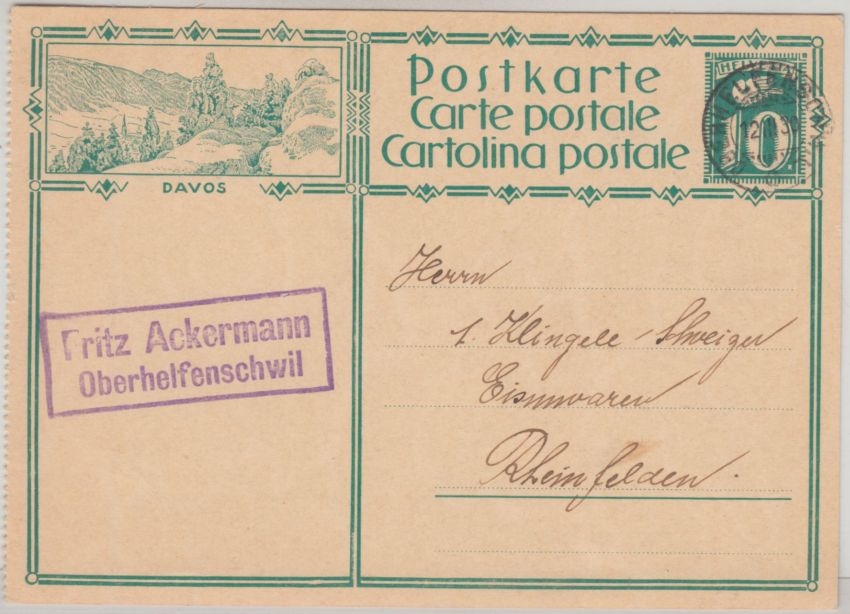 DAVOS
Postkarte
Carte postale
Cartolina postale
HELVETIA
10
Fritz Ackermann
Oberhelfenschwil
Herrn
Klingele-Schweizer
Eisenwaren
Rheinfelden.